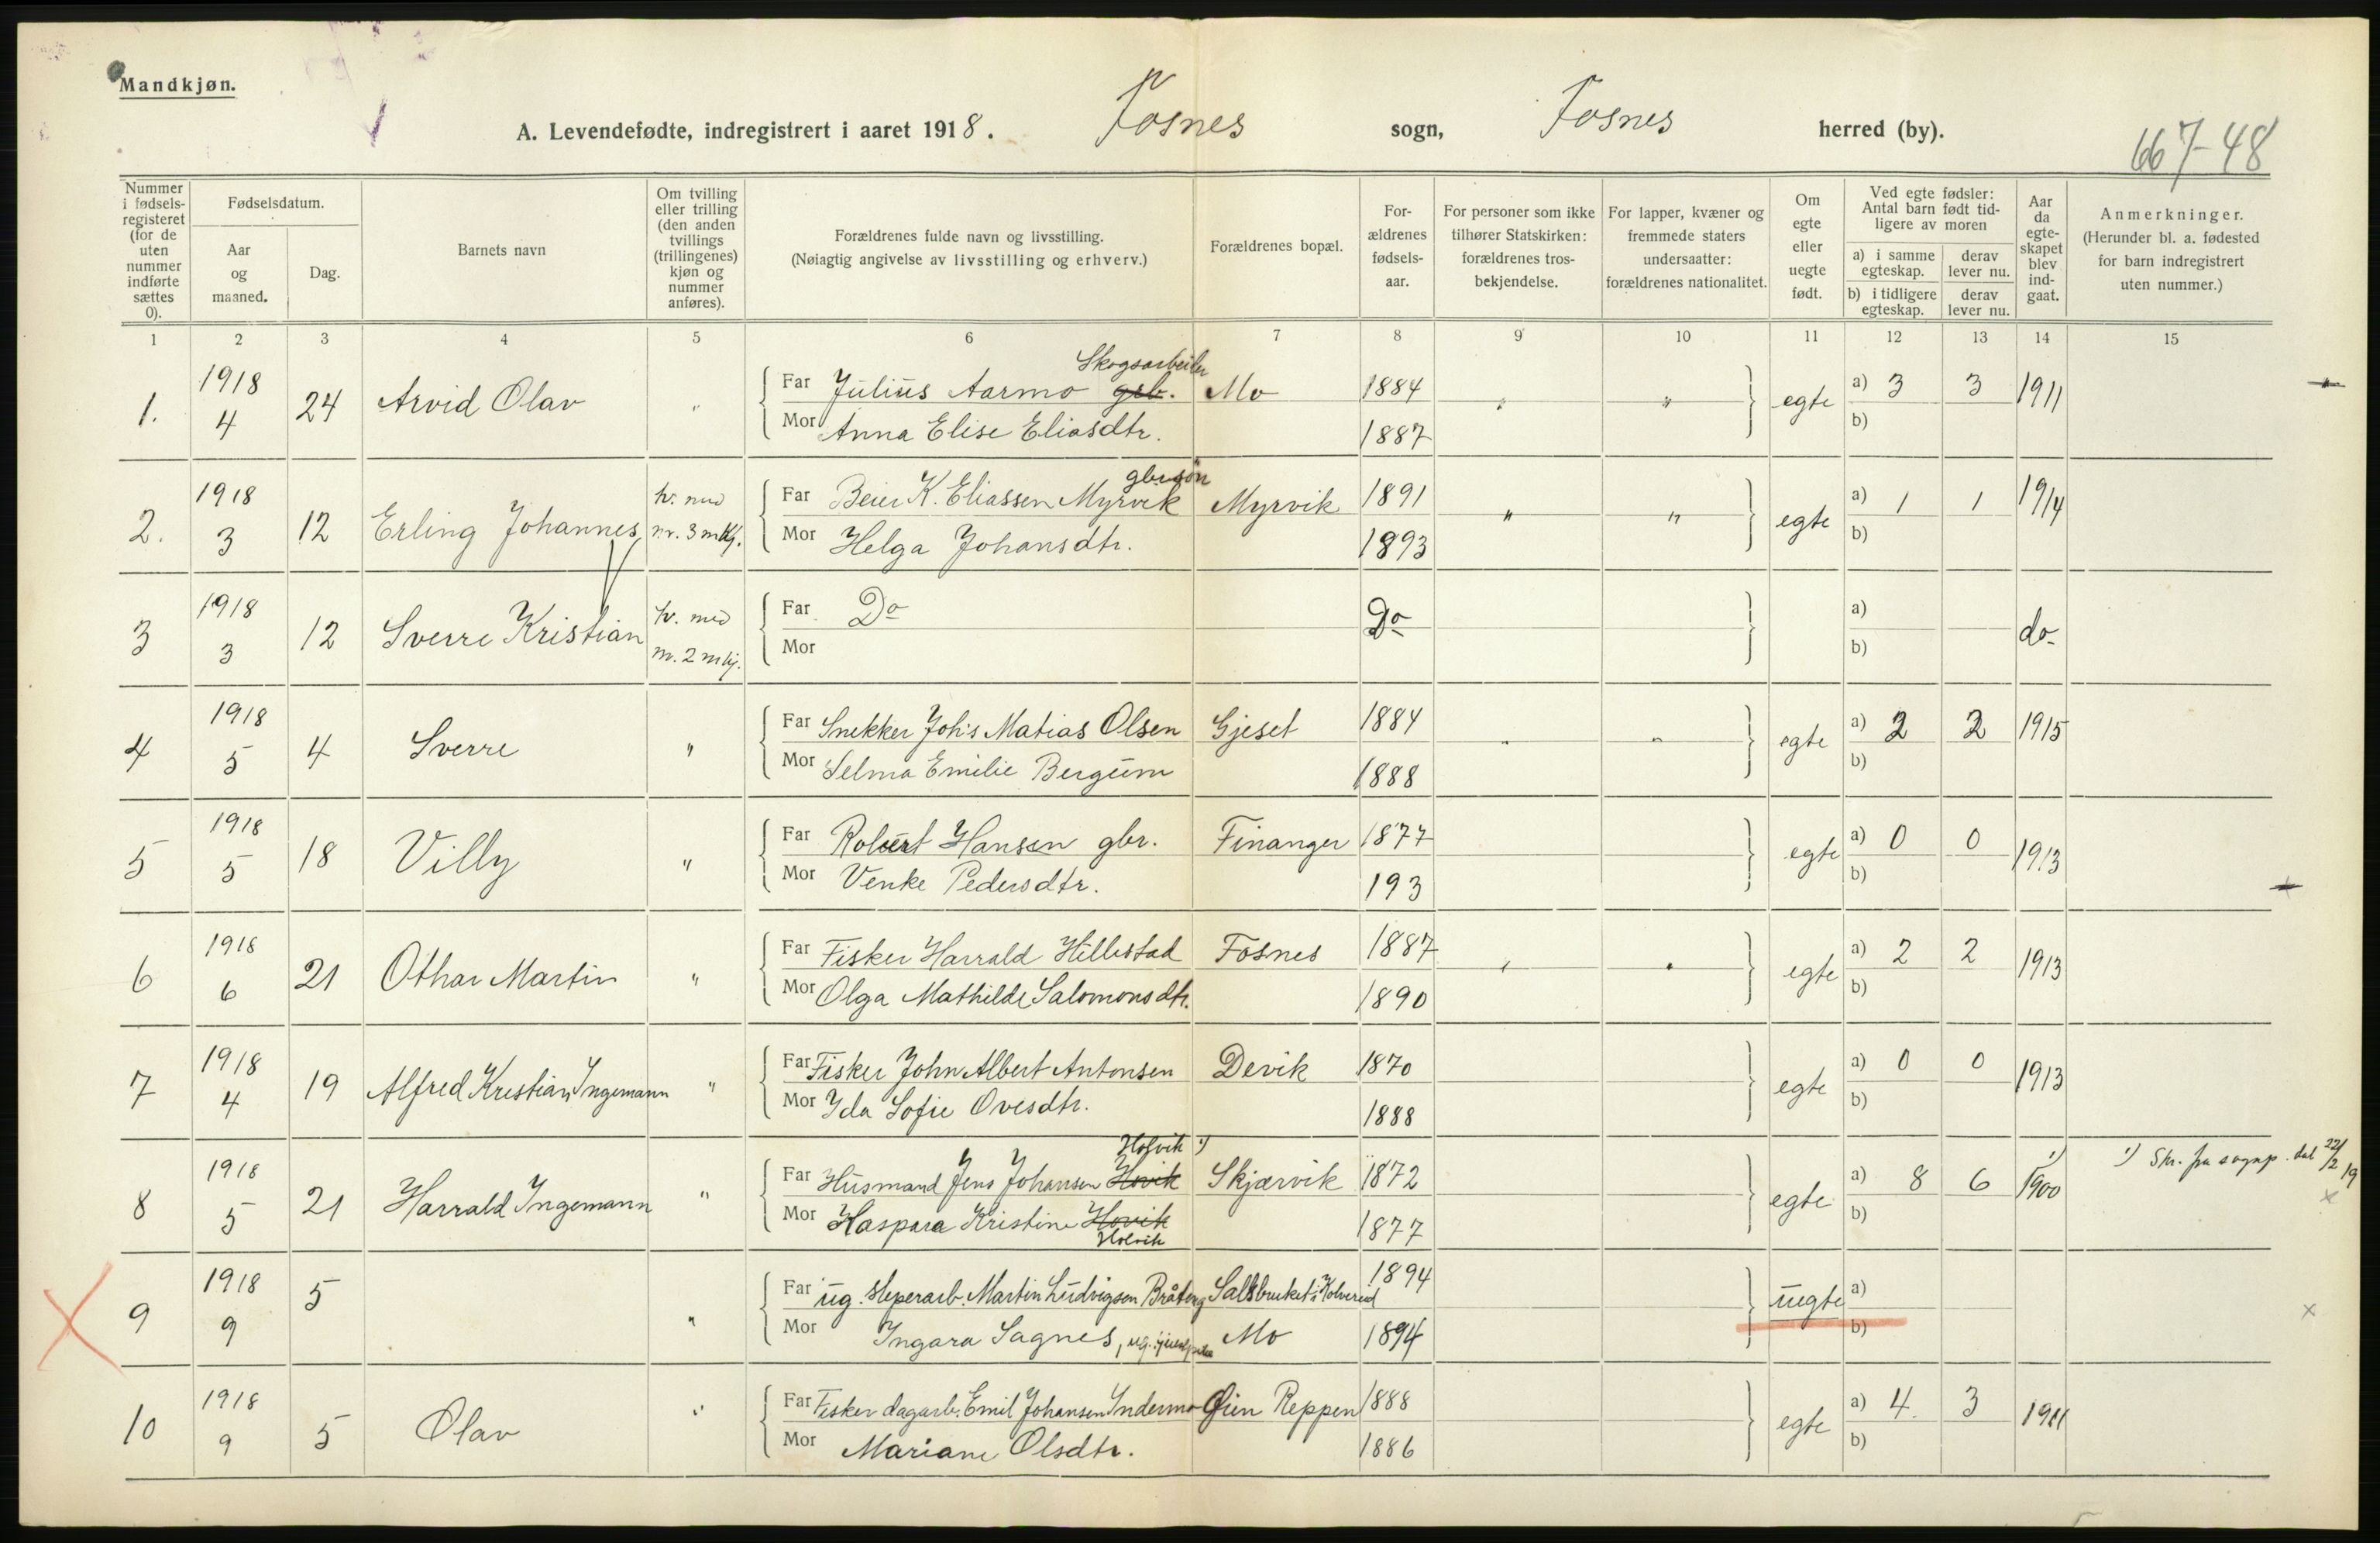 Mandkjøn.
A. Levendefødte, indregistrert i aaret 1918. Fosnes sogn, Fosnes herred (by).
667-48
Nummer i fødsels-registeret (for de uten nummer indførte sættes 0).
Fødselsdatum.
Aar og maaned.
Dag.
Barnets navn
Om tvilling eller trilling (den anden tvillings (trillingenes) kjøn og nummer anføres).
Forældrenes fulde navn og livsstilling.
(Nøiagtig angivelse av livsstilling og erhverv.)
Forældrenes bopæl.
For-ældrenes fødsels-aar.
For personer som ikke tilhører Statskirken: forældrenes tros-bekjendelse.
For lapper, kvæner og fremmede staters undersaatter: forældrenes nationalitet.
Om egte eller uegte født.
Ved egte fødsler: Antal barn født tid-ligere av moren
a) i samme egteskap.
derav lever nu.
b) i tidligere egteskap.
derav lever nu.
Aar da egte-skapet blev ind-gaat.
Anmerkninger.
(Herunder bl. a. fødested for barn indregistrert uten nummer.)
1 2 3 4 5 6 7 8 9 10 11 12 13 14 15
Skogsarbeider
1. 1918 4 24 Arvid Olav " Far Julius Aarmo gsb. Mo 1884 " " egte a) 3 3 1911
Mor Anna Elise Eliasdtr. 1887 b)
gbrsøn
2. 1918 3 12 Erling Johannes tv. med nr. 3 mkj. Far Beier K. Eliassen Myrvik Myrvik 1891 " " egte a) 1 1 1914
Mor Helga Johansdtr. 1893 b)
3 1918 3 12 Sverre Kristian tv. med nr. 2 mkj. Far Do Do a) do
Mor b)
4 1918 5 4 Sverre " Far Snekker Johs Matias Olsen Gjeset 1884 " " egte a) 2 2 1915
Mor Selma Emilie Bergum 1888 b)
5 1918 5 18 Villy " Far Robert Hansen gbr. Finanger 1877 egte a) 0 0 1913
Mor Venke Pedersdtr. 193 b)
6 1918 6 21 Othar Martin " Far Fisker Harrald Hillestad Fosnes 1887 " " egte a) 2 2 1913
Mor Olga Mathilde Salomonsdtr. 1890 b)
7 1918 4 19 Alfred Kristian Ingemann " Far Fisker John Albert Antonsen Devik 1870 egte a) 0 0 1913
Mor Ida Sofie Ovesdtr. 1888 b)
Holvik 1)
8 1918 5 21 Harrald Ingemann " Far Husmand Jens Johansen Hovik Skjærvik 1872 egte a) 8 6 1) 1900 1) Skr. fra sognp. dat 22/2 19
Mor Kaspara Kristine Hovik 1877 b)
Holvik
9 1918 9 5 " Far ug. Martin Ludvigsen Bråten Salsbruket i Kolvereid 1894 uegte a)
Mor Ingara Sagnes, ug. Mo 1894 b)
10 1918 9 5 Olav " Far Fisker dagarb. Emil Johansen Indermo Øien Reppen 1888 egte a) 4. 3 1911
Mor Mariane Olsdtr. 1886 b)